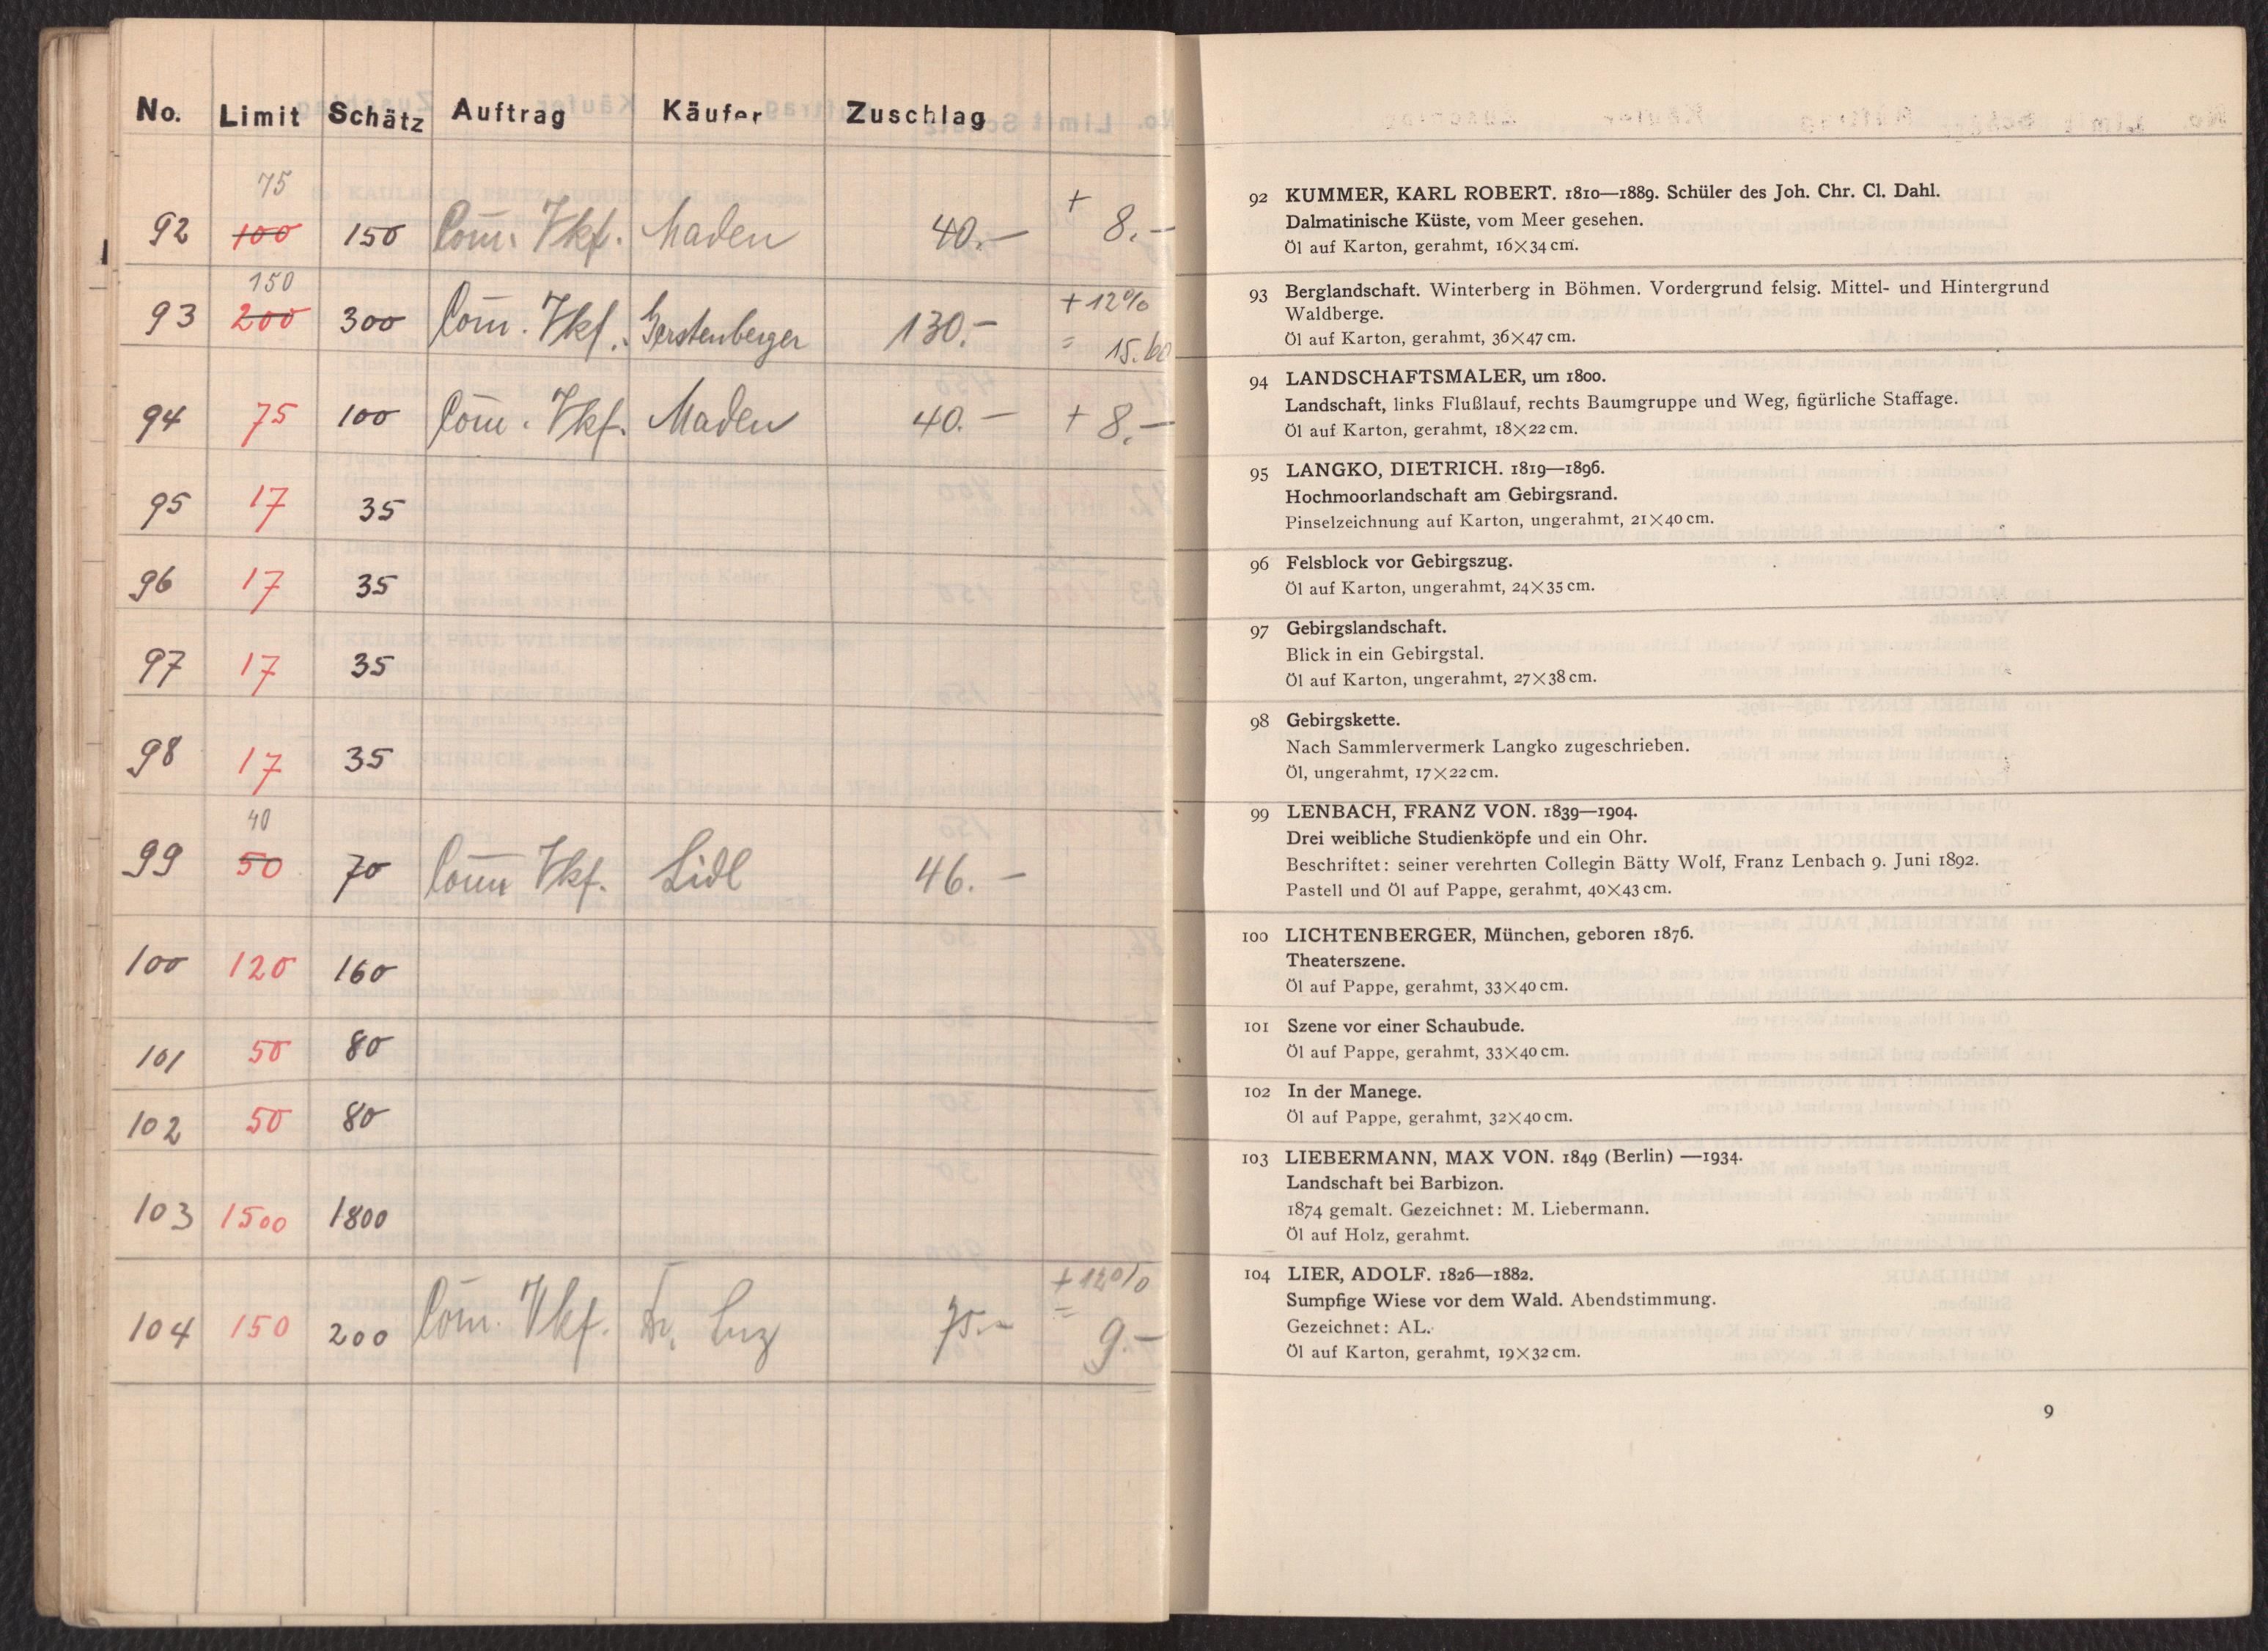 No. Limit Schätz Auftrag Käufer Zuschlag
75
92 100 150 Com. Vkf. Maden 40.— + 8.—
150
93 200 300 Com. Vkf. Gerstenberger 130.— + 12% = 15.60
94 75 100 Com. Vkf. Maden 40.— + 8.—
95 17 35
96 17 35
97 17 35
98 17 35
40
99 50 70 Com Vkf. Lidl 46.—
100 120 160
101 50 80
102 50 80
103 1500 1800
104 150 200 Com. Vkf. Dr. Luz 75.— + 12% = 9.—
92 KUMMER, KARL ROBERT. 1810—1889. Schüler des Joh. Chr. Cl. Dahl.
Dalmatinische Küste, vom Meer gesehen.
Öl auf Karton, gerahmt, 16×34 cm.
93 Berglandschaft. Winterberg in Böhmen. Vordergrund felsig. Mittel- und Hintergrund
Waldberge.
Öl auf Karton, gerahmt, 36×47 cm.
94 LANDSCHAFTSMALER, um 1800.
Landschaft, links Flußlauf, rechts Baumgruppe und Weg, figürliche Staffage.
Öl auf Karton, gerahmt, 18×22 cm.
95 LANGKO, DIETRICH. 1819—1896.
Hochmoorlandschaft am Gebirgsrand.
Pinselzeichnung auf Karton, ungerahmt, 21×40 cm.
96 Felsblock vor Gebirgszug.
Öl auf Karton, ungerahmt, 24×35 cm.
97 Gebirgslandschaft.
Blick in ein Gebirgstal.
Öl auf Karton, ungerahmt, 27×38 cm.
98 Gebirgskette.
Nach Sammlervermerk Langko zugeschrieben.
Öl, ungerahmt, 17×22 cm.
99 LENBACH, FRANZ VON. 1839—1904.
Drei weibliche Studienköpfe und ein Ohr.
Beschriftet: seiner verehrten Collegin Bätty Wolf, Franz Lenbach 9. Juni 1892.
Pastell und Öl auf Pappe, gerahmt, 40×43 cm.
100 LICHTENBERGER, München, geboren 1876.
Theaterszene.
Öl auf Pappe, gerahmt, 33×40 cm.
101 Szene vor einer Schaubude.
Öl auf Pappe, gerahmt, 33×40 cm.
102 In der Manege.
Öl auf Pappe, gerahmt, 32×40 cm.
103 LIEBERMANN, MAX VON. 1849 (Berlin) —1934.
Landschaft bei Barbizon.
1874 gemalt. Gezeichnet: M. Liebermann.
Öl auf Holz, gerahmt.
104 LIER, ADOLF. 1826—1882.
Sumpfige Wiese vor dem Wald. Abendstimmung.
Gezeichnet: AL.
Öl auf Karton, gerahmt, 19×32 cm.
9